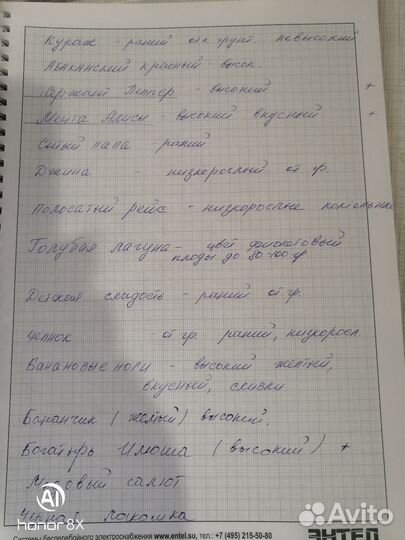 Кураж - раний отк грунт. невысокий
Абаканский красный - высок.
Сержант Пеппер - высокий +
Мечта Алисы - высокий вкусный +
Сытый папа - раний
Джина - низкорослый от гр.
Полосатый рейс - низкорослые коктельные
Голубая лагуна - цвет фиолетовый
плоды до 80-100 гр
Детская сладость - раний от гр.
Челнок от гр. раний, низкоросл.
Банановые ноги - высокий желтый,
вкусный, сливки
Баранчик (желтый) высокий.
Богатырь Илюша (высокий) +
салют
Черная лакомка
AI
honor 8X
Системы бесперебойного электроснабжения www.entel.su, тел.: +7 (495) 215-50-80
ЭНТЕЛ
Avito